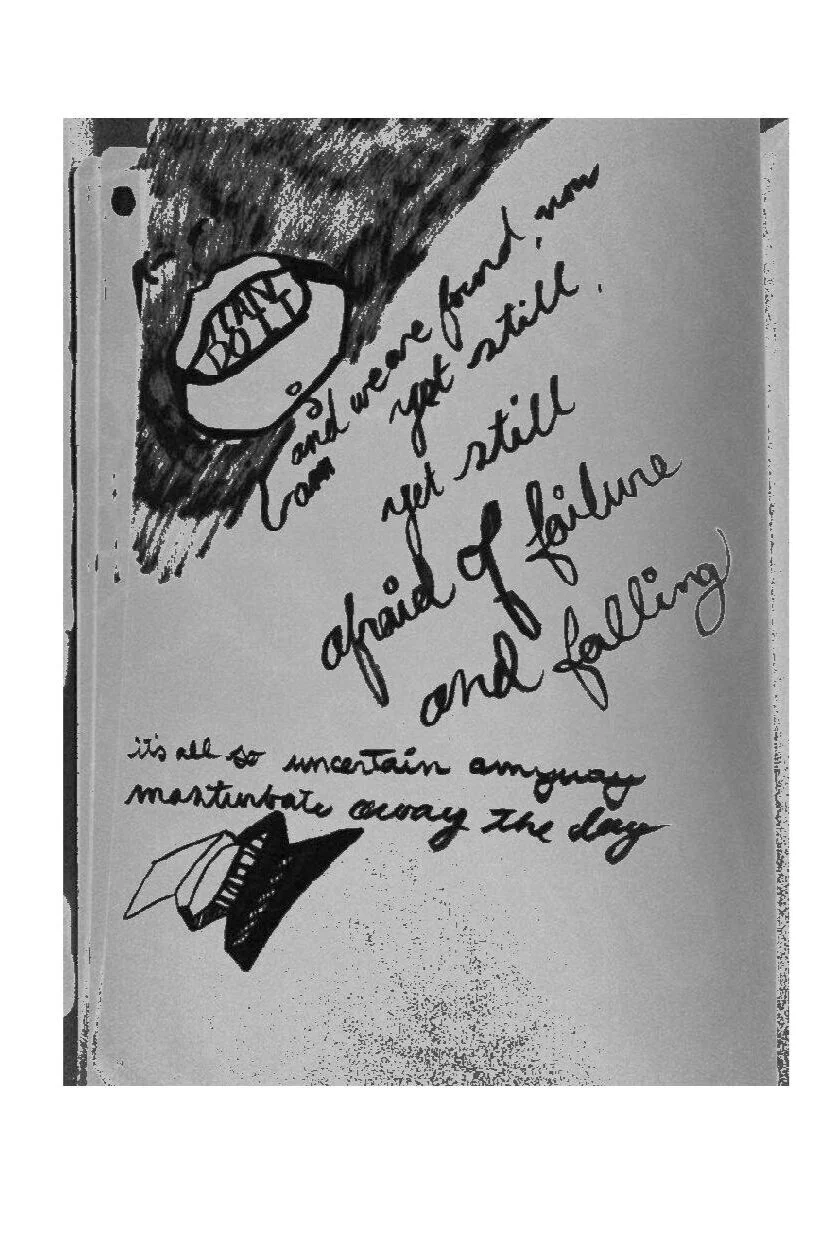 I CAN
DO IT
and we are found, now
I am yet still,
yet still
afraid of failure
and falling
it's all so uncertain anyway
masturbate away the day